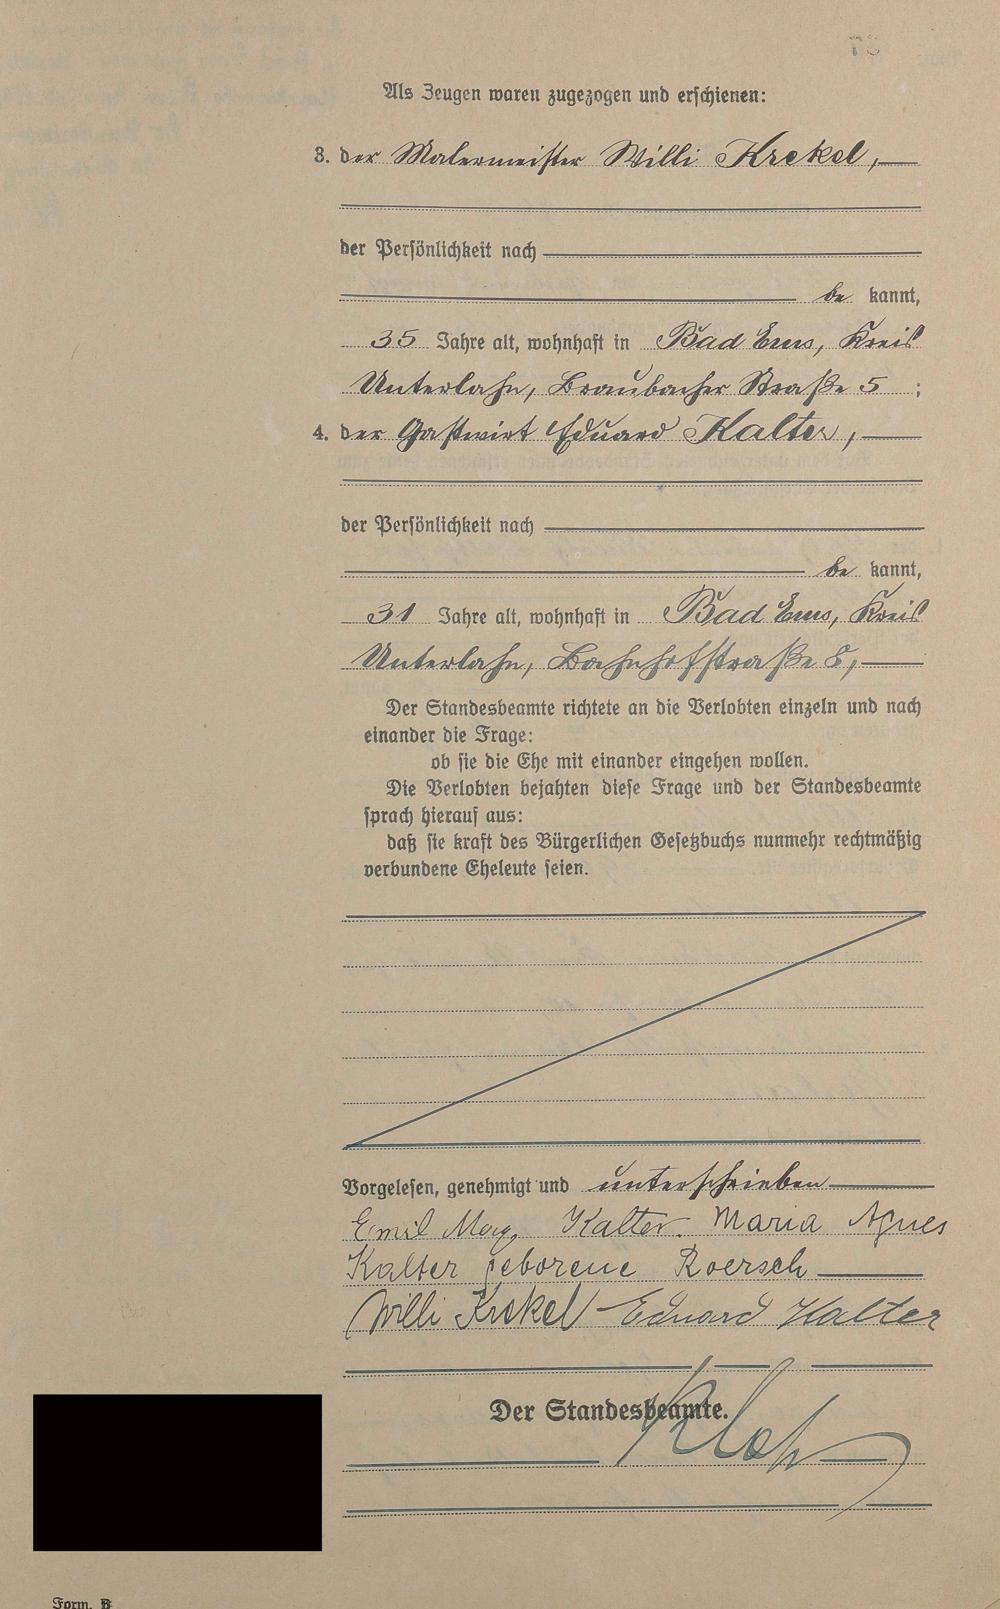 Als Zeugen waren zugezogen und erschienen:
3. der Malermeister Willi Krekel,
der Persönlichkeit nach
be kannt,
35 Jahre alt, wohnhaft in Bad Ems, Kreis
Unterlahn, Braubacher Straße 5 ;
4. der Gastwirt Eduard Kalter,
der Persönlichkeit nach
be kannt,
31 Jahre alt, wohnhaft in Bad Ems, Kreis
Unterlahn, Bahnhofstraße 8,
Der Standesbeamte richtete an die Verlobten einzeln und nach
einander die Frage:
ob sie die Ehe mit einander eingehen wollen.
Die Verlobten bejahten diese Frage und der Standesbeamte
sprach hierauf aus:
daß sie kraft des Bürgerlichen Gesetzbuchs nunmehr rechtmäßig
verbundene Eheleute seien.
Vorgelesen, genehmigt und unterschrieben
Emil Max Kalter. Maria Agnes
Kalter geborene Roersch
Willi Krekel Eduard Kalter
Der Standesbeamte.
Form. B